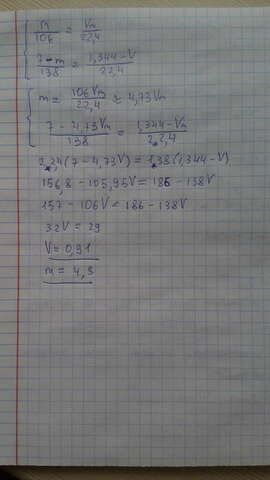 m/106 = Vm/22,4
7-m/138 = 1,344-V/22,4
m = 106Vm/22,4 ≈ 4,73Vm
7-4,73Vm/138 = 1,344-Vm/22,4
2,24(7-4,73V) = 1,38(1,344-V)
156,8-105,95V = 186-138V
157-106V = 186-138V
32V = 29
V = 0,91
m = 4,3